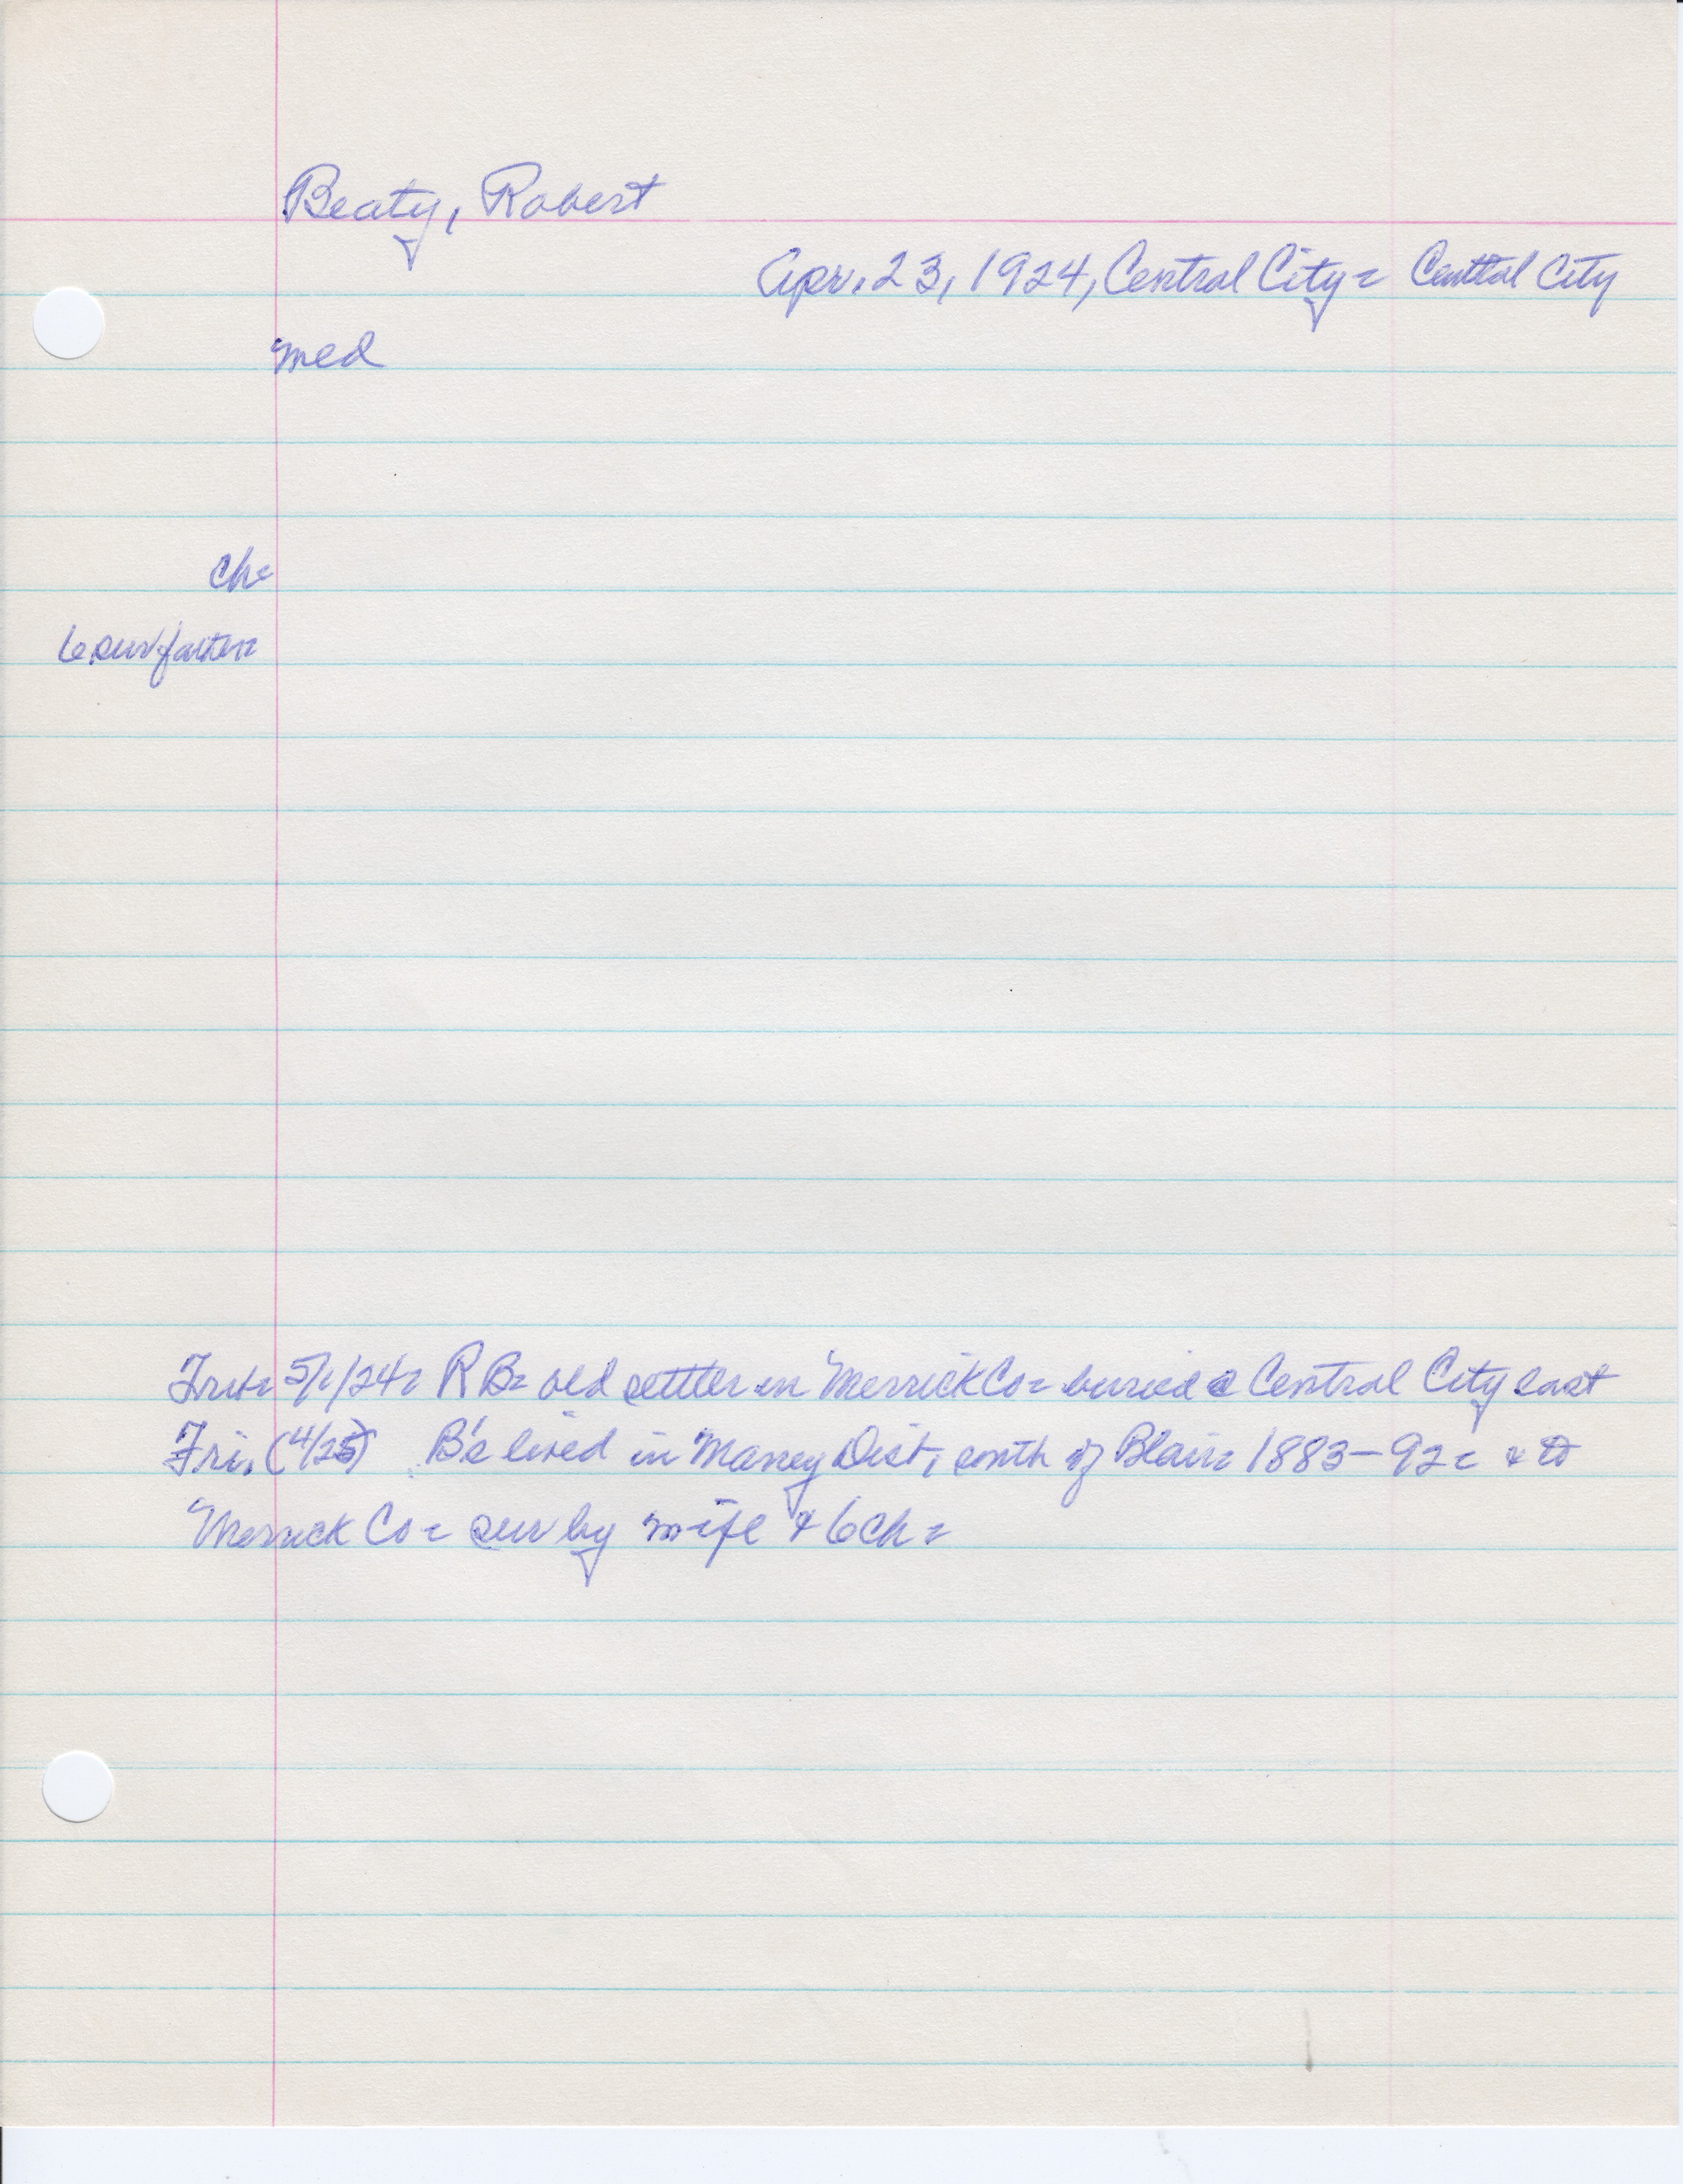 Beaty, Robert
Apr. 23, 1924, Central City = Central City
med
ch=
6 sur father=
5/1/24= R B= old settler in Merrick Co= buried @ Central City last
Fri. (4/25) B's lived in Dist, south of Blair= 1883-92= & to
Merrick Co= sur by wife & 6 ch=